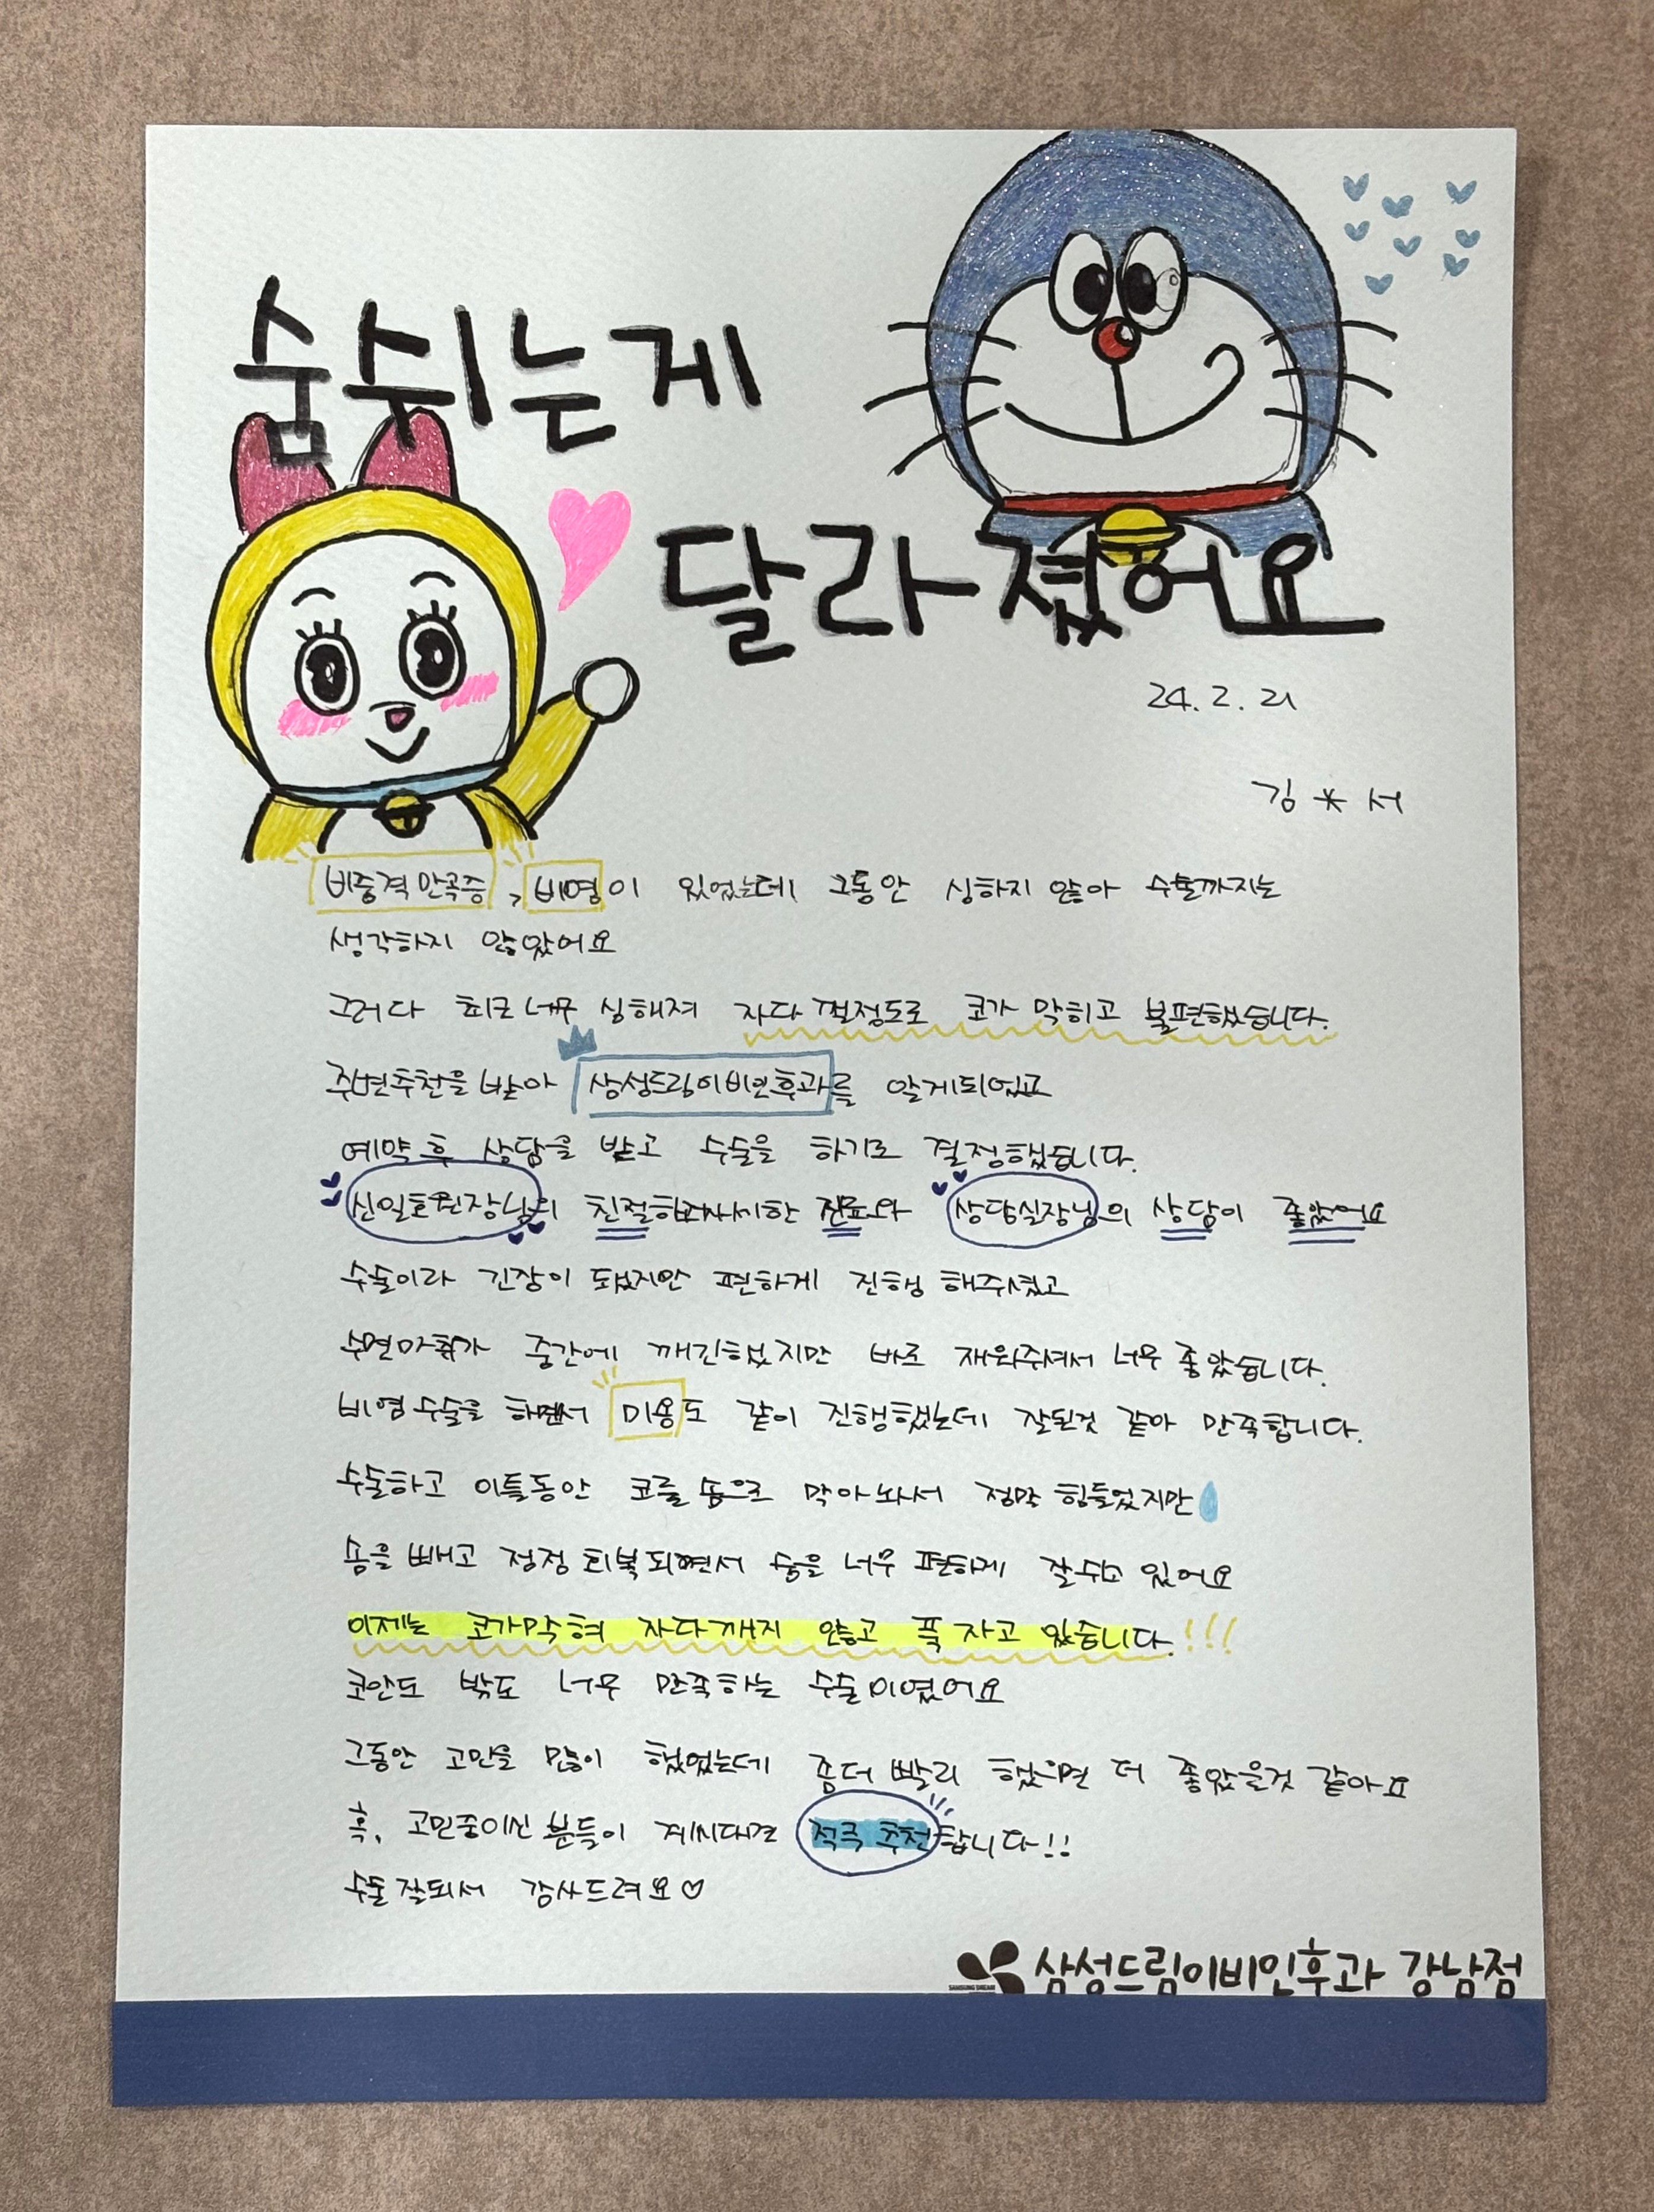 숨쉬는게
달라졌어요
24. 2. 21
김 * 서
비중격만곡증, 비염이 있었는데 그동안 심하지 않아 수술까지는
생각하지 않았어요
그러다 최근 너무 심해져 자다 깰정도로 코가 막히고 불편했습니다.
주변추천을 받아 삼성드림이비인후과를 알게되었고
예약 후 상담을 받고 수술을 하기로 결정했습니다.
신일호원장님의 친절하고자세한 진료와 상담실장님의 상담이 좋았어요
수술이라 긴장이 됐지만 편하게 진행 해주셨고
수면마취가 중간에 깨긴했지만 바로 재워주셔서 너무 좋았습니다.
비염수술을 하면서 미용도 같이 진행했는데 잘된것 같아 만족합니다.
수술하고 이틀동안 코를 솜으로 막아놔서 정말 힘들었지만
솜을 빼고 점점 회복되면서 숨을 너무 편하게 잘쉬고 있어요
이제는 코가막혀 자다깨지 않고 푹 자고 있습니다.!!!
코안도 밖도 너무 만족하는 수술이였어요
그동안 고민을 많이 했었는데 좀더 빨리 했으면 더 좋았을것 같아요
혹, 고민중이신 분들이 계시다면 적극 추천합니다!!
수술 잘되서 감사드려요♡
SAMSUNG DREAM
삼성드림이비인후과 강남점